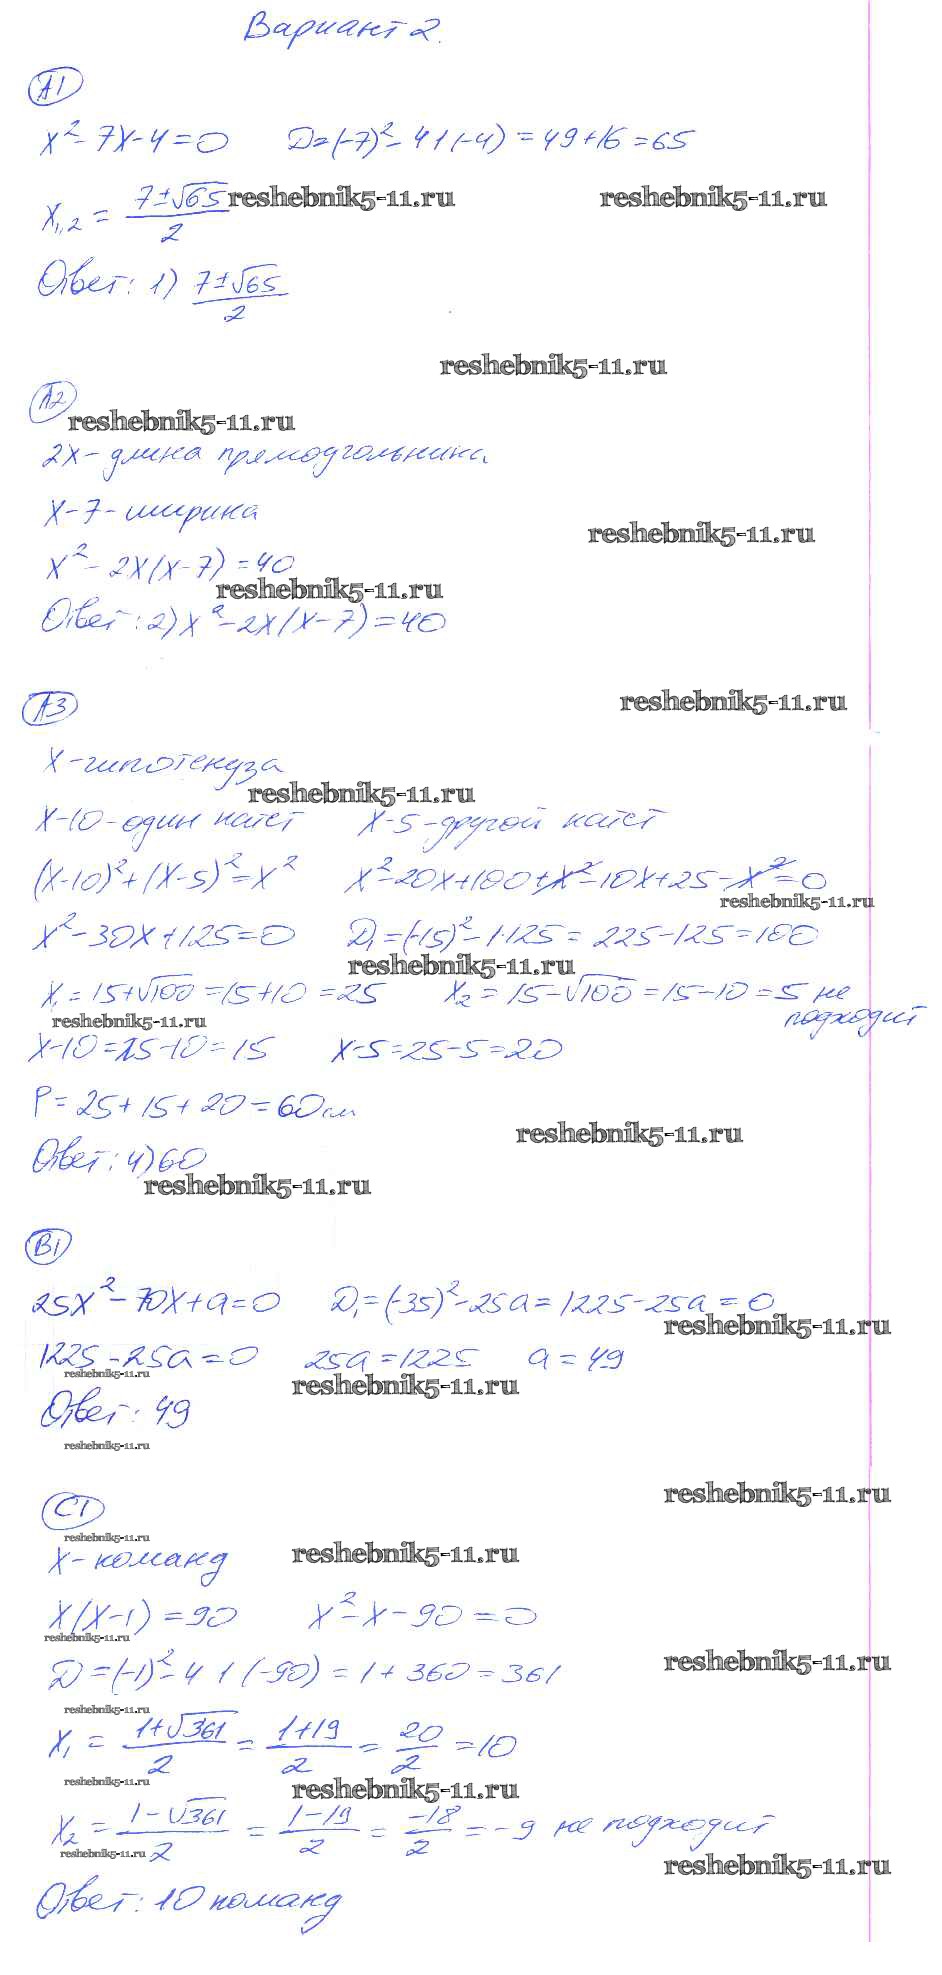 Вариант 2.
А1
x² - 7x - 4 = 0   D = (-7)² - 4·1·(-4) = 49 + 16 = 65
x₁,₂ = (7 ± √65)/2
reshebnik5-11.ru   reshebnik5-11.ru
Ответ: 1) (7 ± √65)/2
reshebnik5-11.ru
А2
reshebnik5-11.ru
2x - длина прямоугольника
x - 7 - ширина
reshebnik5-11.ru
x² - 2x(x - 7) = 40
reshebnik5-11.ru
Ответ: 2) x² - 2x(x - 7) = 40
А3
reshebnik5-11.ru
x - гипотенуза
reshebnik5-11.ru
x - 10 - один катет   x - 5 - другой катет
(x - 10)² + (x - 5)² = x²   x² - 20x + 100 + x² - 10x + 25 - x² = 0
reshebnik5-11.ru
x² - 30x + 125 = 0   D₁ = (-15)² - 1·125 = 225 - 125 = 100
reshebnik5-11.ru
x₁ = 15 + √100 = 15 + 10 = 25   x₂ = 15 - √100 = 15 - 10 = 5 не
подходит
reshebnik5-11.ru
x - 10 = 25 - 10 = 15   x - 5 = 25 - 5 = 20
P = 25 + 15 + 20 = 60 см
reshebnik5-11.ru
Ответ: 4) 60
reshebnik5-11.ru
В1
25x² - 70x + a = 0   D₁ = (-35)² - 25a = 1225 - 25a = 0
reshebnik5-11.ru
1225 - 25a = 0   25a = 1225   a = 49
reshebnik5-11.ru   reshebnik5-11.ru
Ответ: 49
reshebnik5-11.ru
reshebnik5-11.ru
С1
reshebnik5-11.ru
x - команд   reshebnik5-11.ru
x(x - 1) = 90   x² - x - 90 = 0
reshebnik5-11.ru
D = (-1)² - 4·1·(-90) = 1 + 360 = 361   reshebnik5-11.ru
reshebnik5-11.ru
x₁ = (1 + √361)/2 = (1 + 19)/2 = 20/2 = 10
reshebnik5-11.ru   reshebnik5-11.ru
x₂ = (1 - √361)/2 = (1 - 19)/2 = -18/2 = -9 не подходит
reshebnik5-11.ru   reshebnik5-11.ru
Ответ: 10 команд